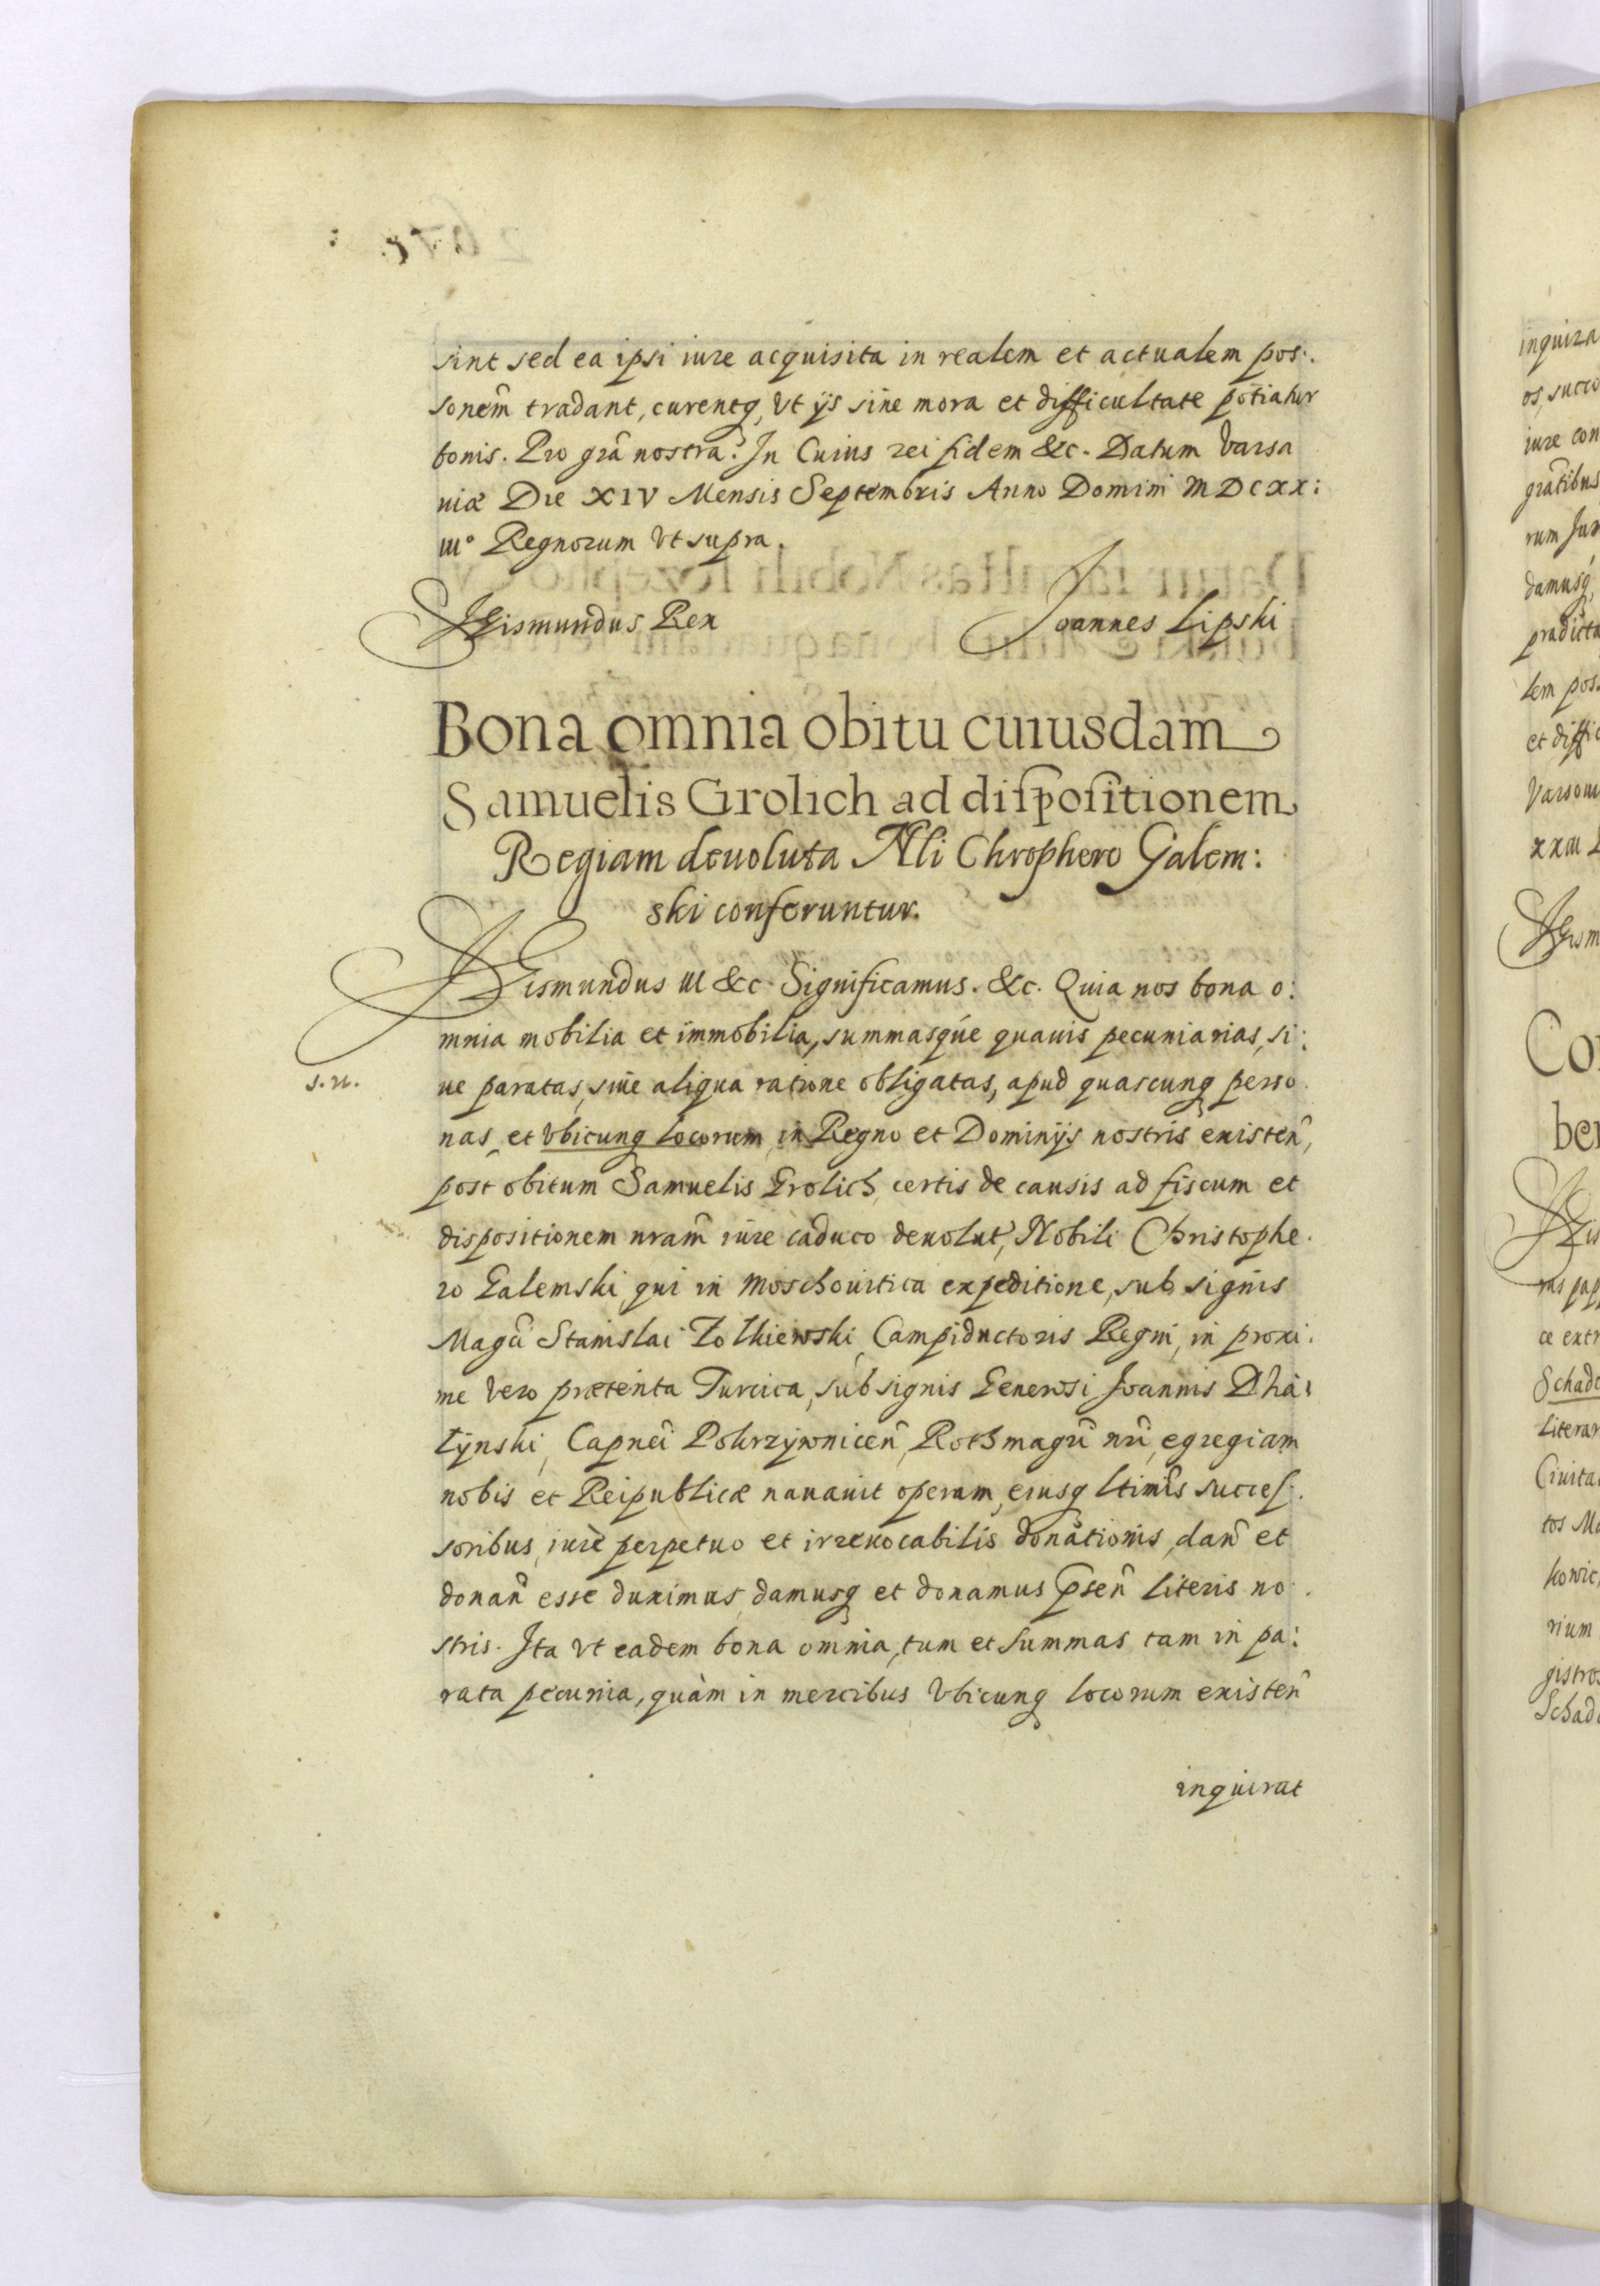 sint sed ea ipsi iure acquisita in realem et actualem pos:
sonem̃ tradant, curentq, vt ijs sine mora et difficultate potiatur
bonis. Pro grã nostra. In Cuius rei fidem &c. Datum Varsa
uiæ Die XIV Mensis Septembris Anno Domini MDCXX:
III° Regnorum vt supra.
Sigismundus Rex Joannes Lipski
Bona omnia obitu cuiusdam
Samuelis Grolich ad dispositionem
Regiam deuoluta Nli Chrophero Galem:
ski conferuntur.
Sigismundus III &c Significamus. &c. Quia nos bona o:
mnia mobilia et immobilia, summasque quauis pecuniarias, si:
ue paratas, siue aliqua ratione obligatas, apud quascunq perso
nas et vbicunq locorum in Regno et Dominijs nostris existeñ,
s.n.
post obitum Samuelis Grolich, certis de causis ad fiscum et
dispositionem nram̃ iure caduco deuolut, Nobili Christophe
ro Galemski, qui in Moschouitica expeditione, sub signis
Magci Stanislai Zolkiewski Campiductoris Regni, in proxi
me vero prætenta Turcica, sub signis Generosi Joannis Dzia
lynski, Capnei Pokrzywniceñ, Rothmagri nri, egregiam
nobis et Reipublicæ nauauit operam, eiusq ltimis succes:
soribus, iure perpetuo et irreuocabilis donationis, dañ et
donañ esse duximus, damusq et donamus pseñ literis no
stris. Ita vt eadem bona omnia, tum et summas tam in pa:
rata pecunia, quàm in mercibus vbicunq locorum existeñ
inquirat